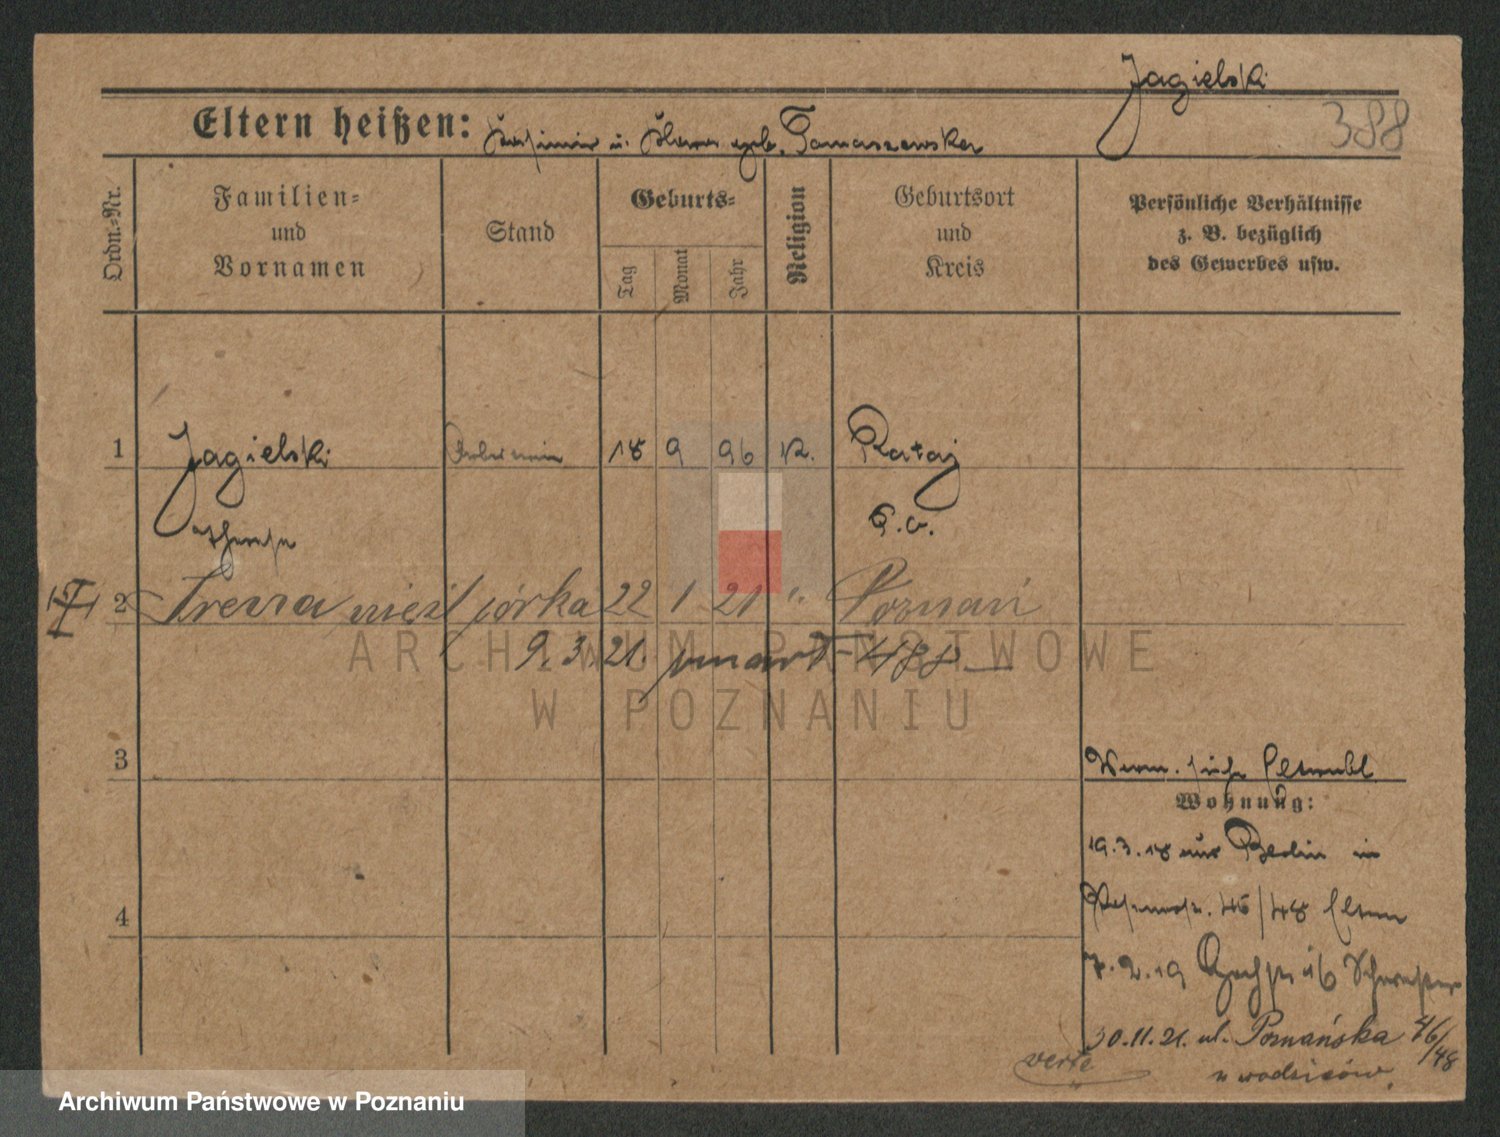 Jagielski
388
Eltern heißen: Kasimir u. geb. Tomaszewska
Ordn.-Nr.
Familien-
und
Vornamen
Stand
Geburts-
Tag
Monat
Jahr
Religion
Geburtsort
und
Kreis
Persönliche Verhältnisse
z. B. bezüglich
des Gewerbes usw.
1 Jagielski Arbeiterin 18 9 96 K. Rataj
P. O.
2 Irena nieśl córka 22 1 21 " Poznań
9. 3. 21. umarł 488
3
Wohnung:
19.3.18 aus Berlin in
46/48 Eltern
4
7.2.19 16 Schwester
30.11.21. ul. Poznańska 46/48
verte
u rodziców.
ARCHIWUM PAŃSTWOWE
W POZNANIU
Archiwum Państwowe w Poznaniu